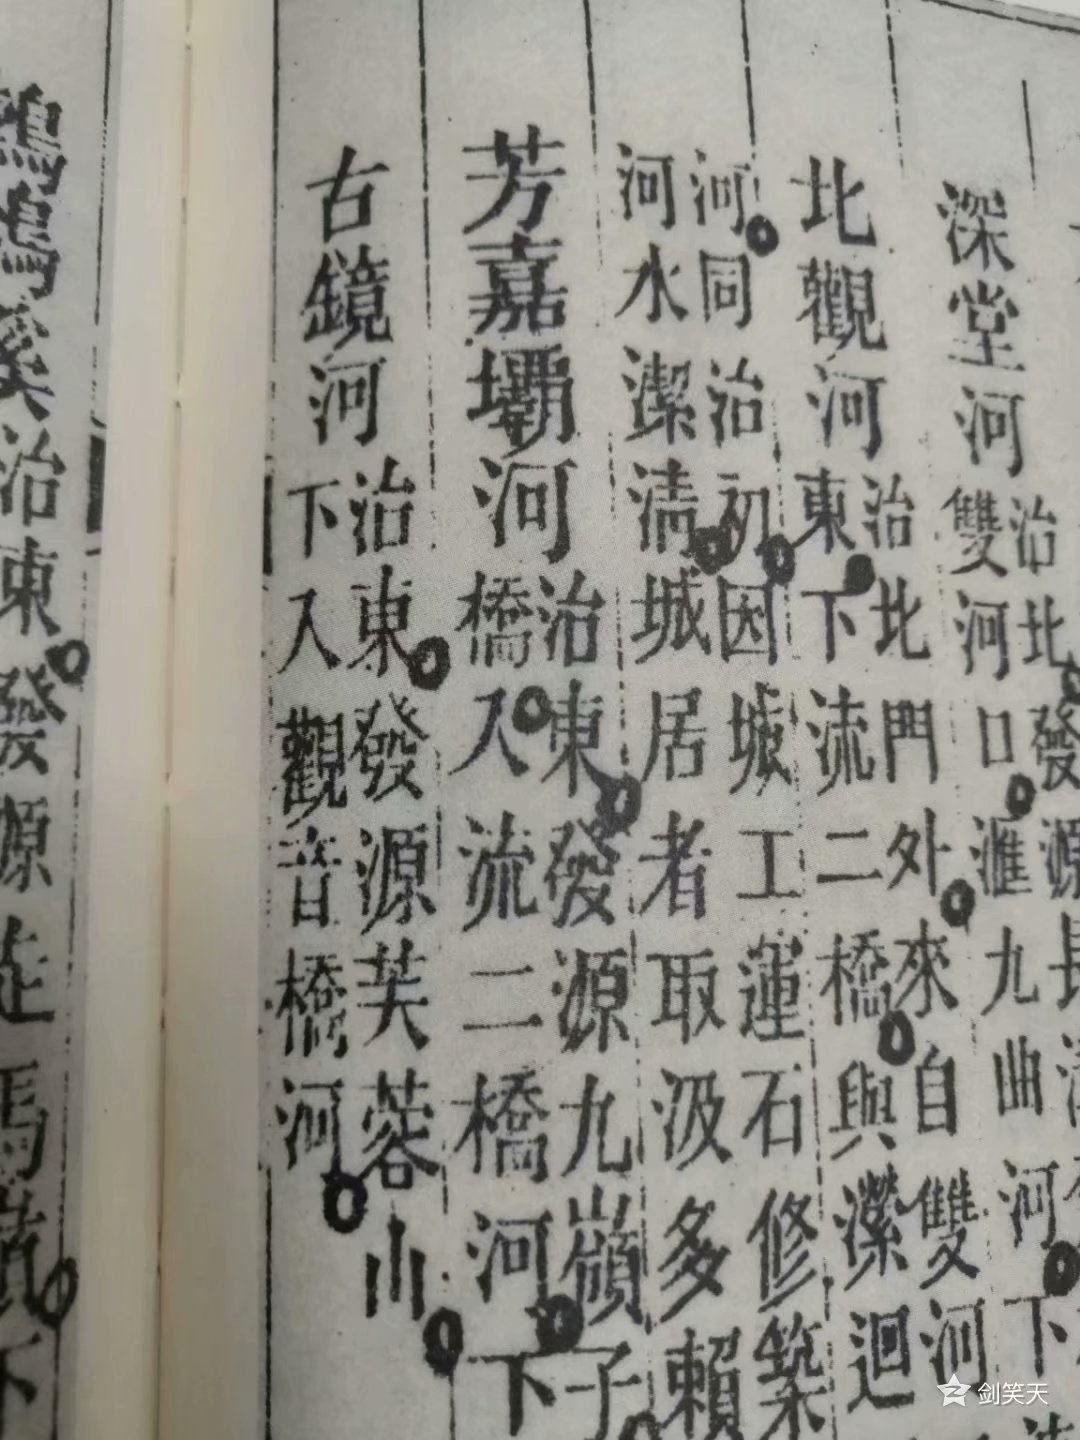 深堂河
治北發源長
雙河口滙九曲河下
北觀河
治北門外來自雙河
東下流二橋與瀠迴
河同治初因城工運石修築
河水潔清城居者取汲多賴
芳嘉壩河
治東發源九嶺子
橋入流二橋河下
古鏡河
治東發源芙蓉山
下入觀音橋河
溪治東發源走馬嶺下
剑笑天